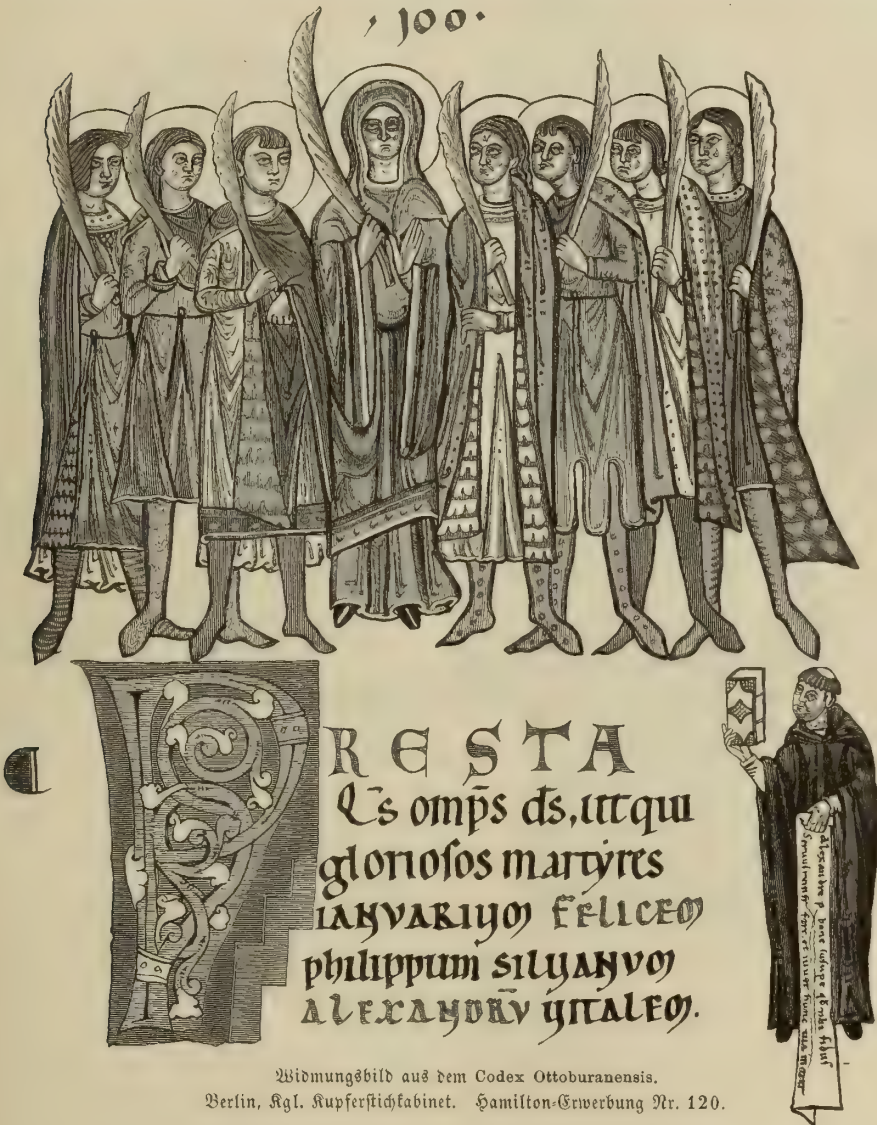 · 100 ·
PRESTA
Q̄s omp̄s d̄s, ut qui
glorioſos martyres
IANVARIUM FELICEM
philippum SILUANVM
ALEXANDRV̄ UITALEM.
alexandre p bone tibi fiduſ
et hunc
Widmungsbild aus dem Codex Ottoburanensis.
Berlin, Kgl. Kupferstichkabinet. Hamilton-Erwerbung Nr. 120.